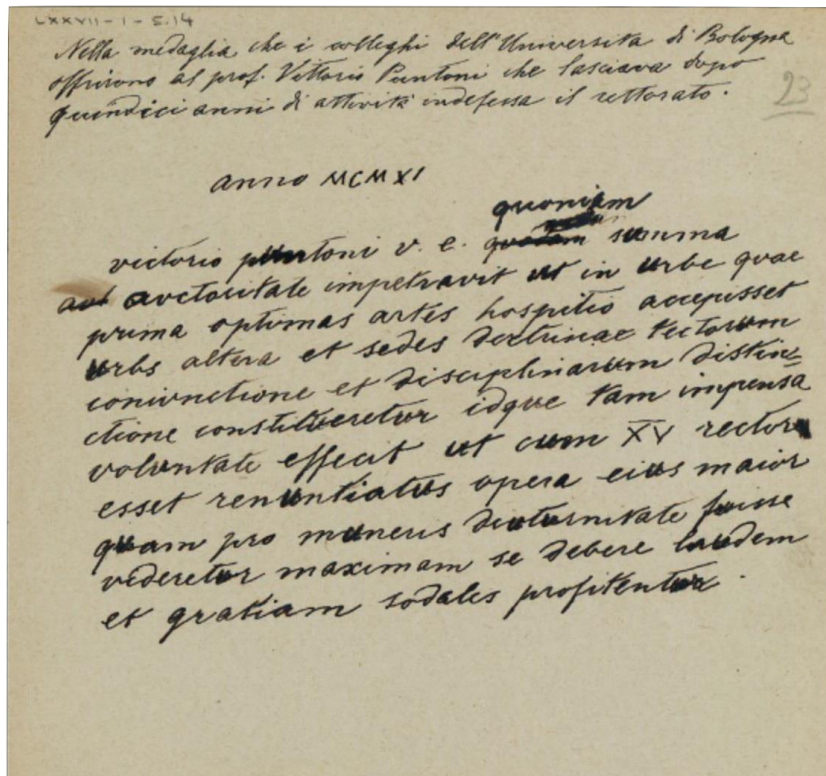 LXXVII-1-5.14
Nella medaglia che i colleghi dell'Università di Bologna
offrirono al prof. Vittorio Puntoni che lasciava dopo
quindici anni di attività indefessa il rettorato.
23
anno MCMXI
quoniam
victorio puntoni v. e. summa
auctoritate impetravit ut in urbe quae
prima optimas artes hospitio accepisset
urbs altera et sedes doctrinae tectorum
coniunctione et disciplinarum distin=
ctione constitueretur idque tam impensa
voluntate effecit ut cum XV rector
esset renuntiatus opera eius maior
quam pro muneris diuturnitate fuisse
videretur maximam se debere laudem
et gratiam sodales profitentur.